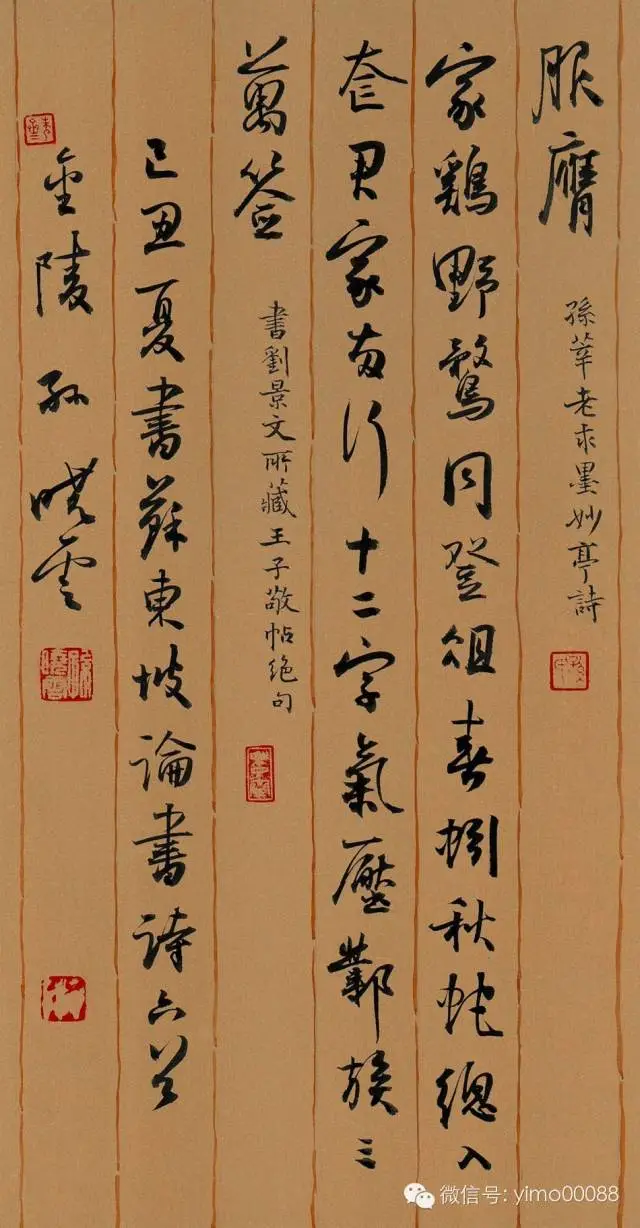 服膺
孫莘老求墨妙亭詩
家鷄野鶩同登俎春蚓秋蛇總入
奩君家兩行十二字氣壓鄴侯三
萬签
書劉景文所藏王子敬帖絕句
己丑夏書蘇東坡論書詩六首
金陵孫曉雲
微信号: yimo00088